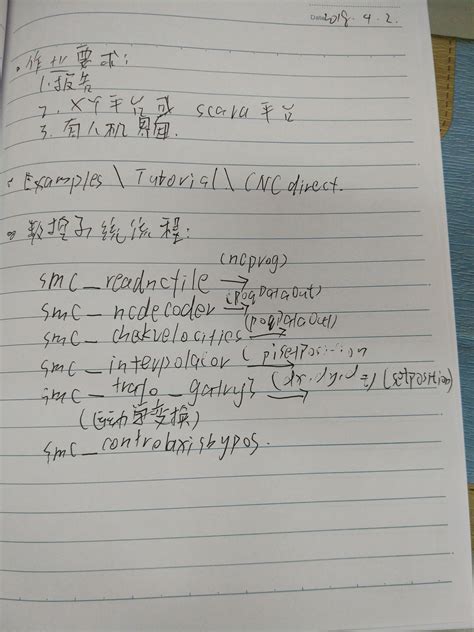 Date 2018. 4. 2.
作业要求:
1. 报告
2. XY平台或 scara平台
3. 有人机界面.
Examples \ Tutorial \ CNCdirect.
数控子统流程:
(ncprog)
smc_readncfile →
smc_ncdecoder → (poqDataOut)
smc_chekvelocities → (poqDataOut)
smc_interpolator (piSetPosition
smc_trafo_gantry3 (dx, dy, d =) (setposition)
(运动学变换)
smc_controlaxisbypos.